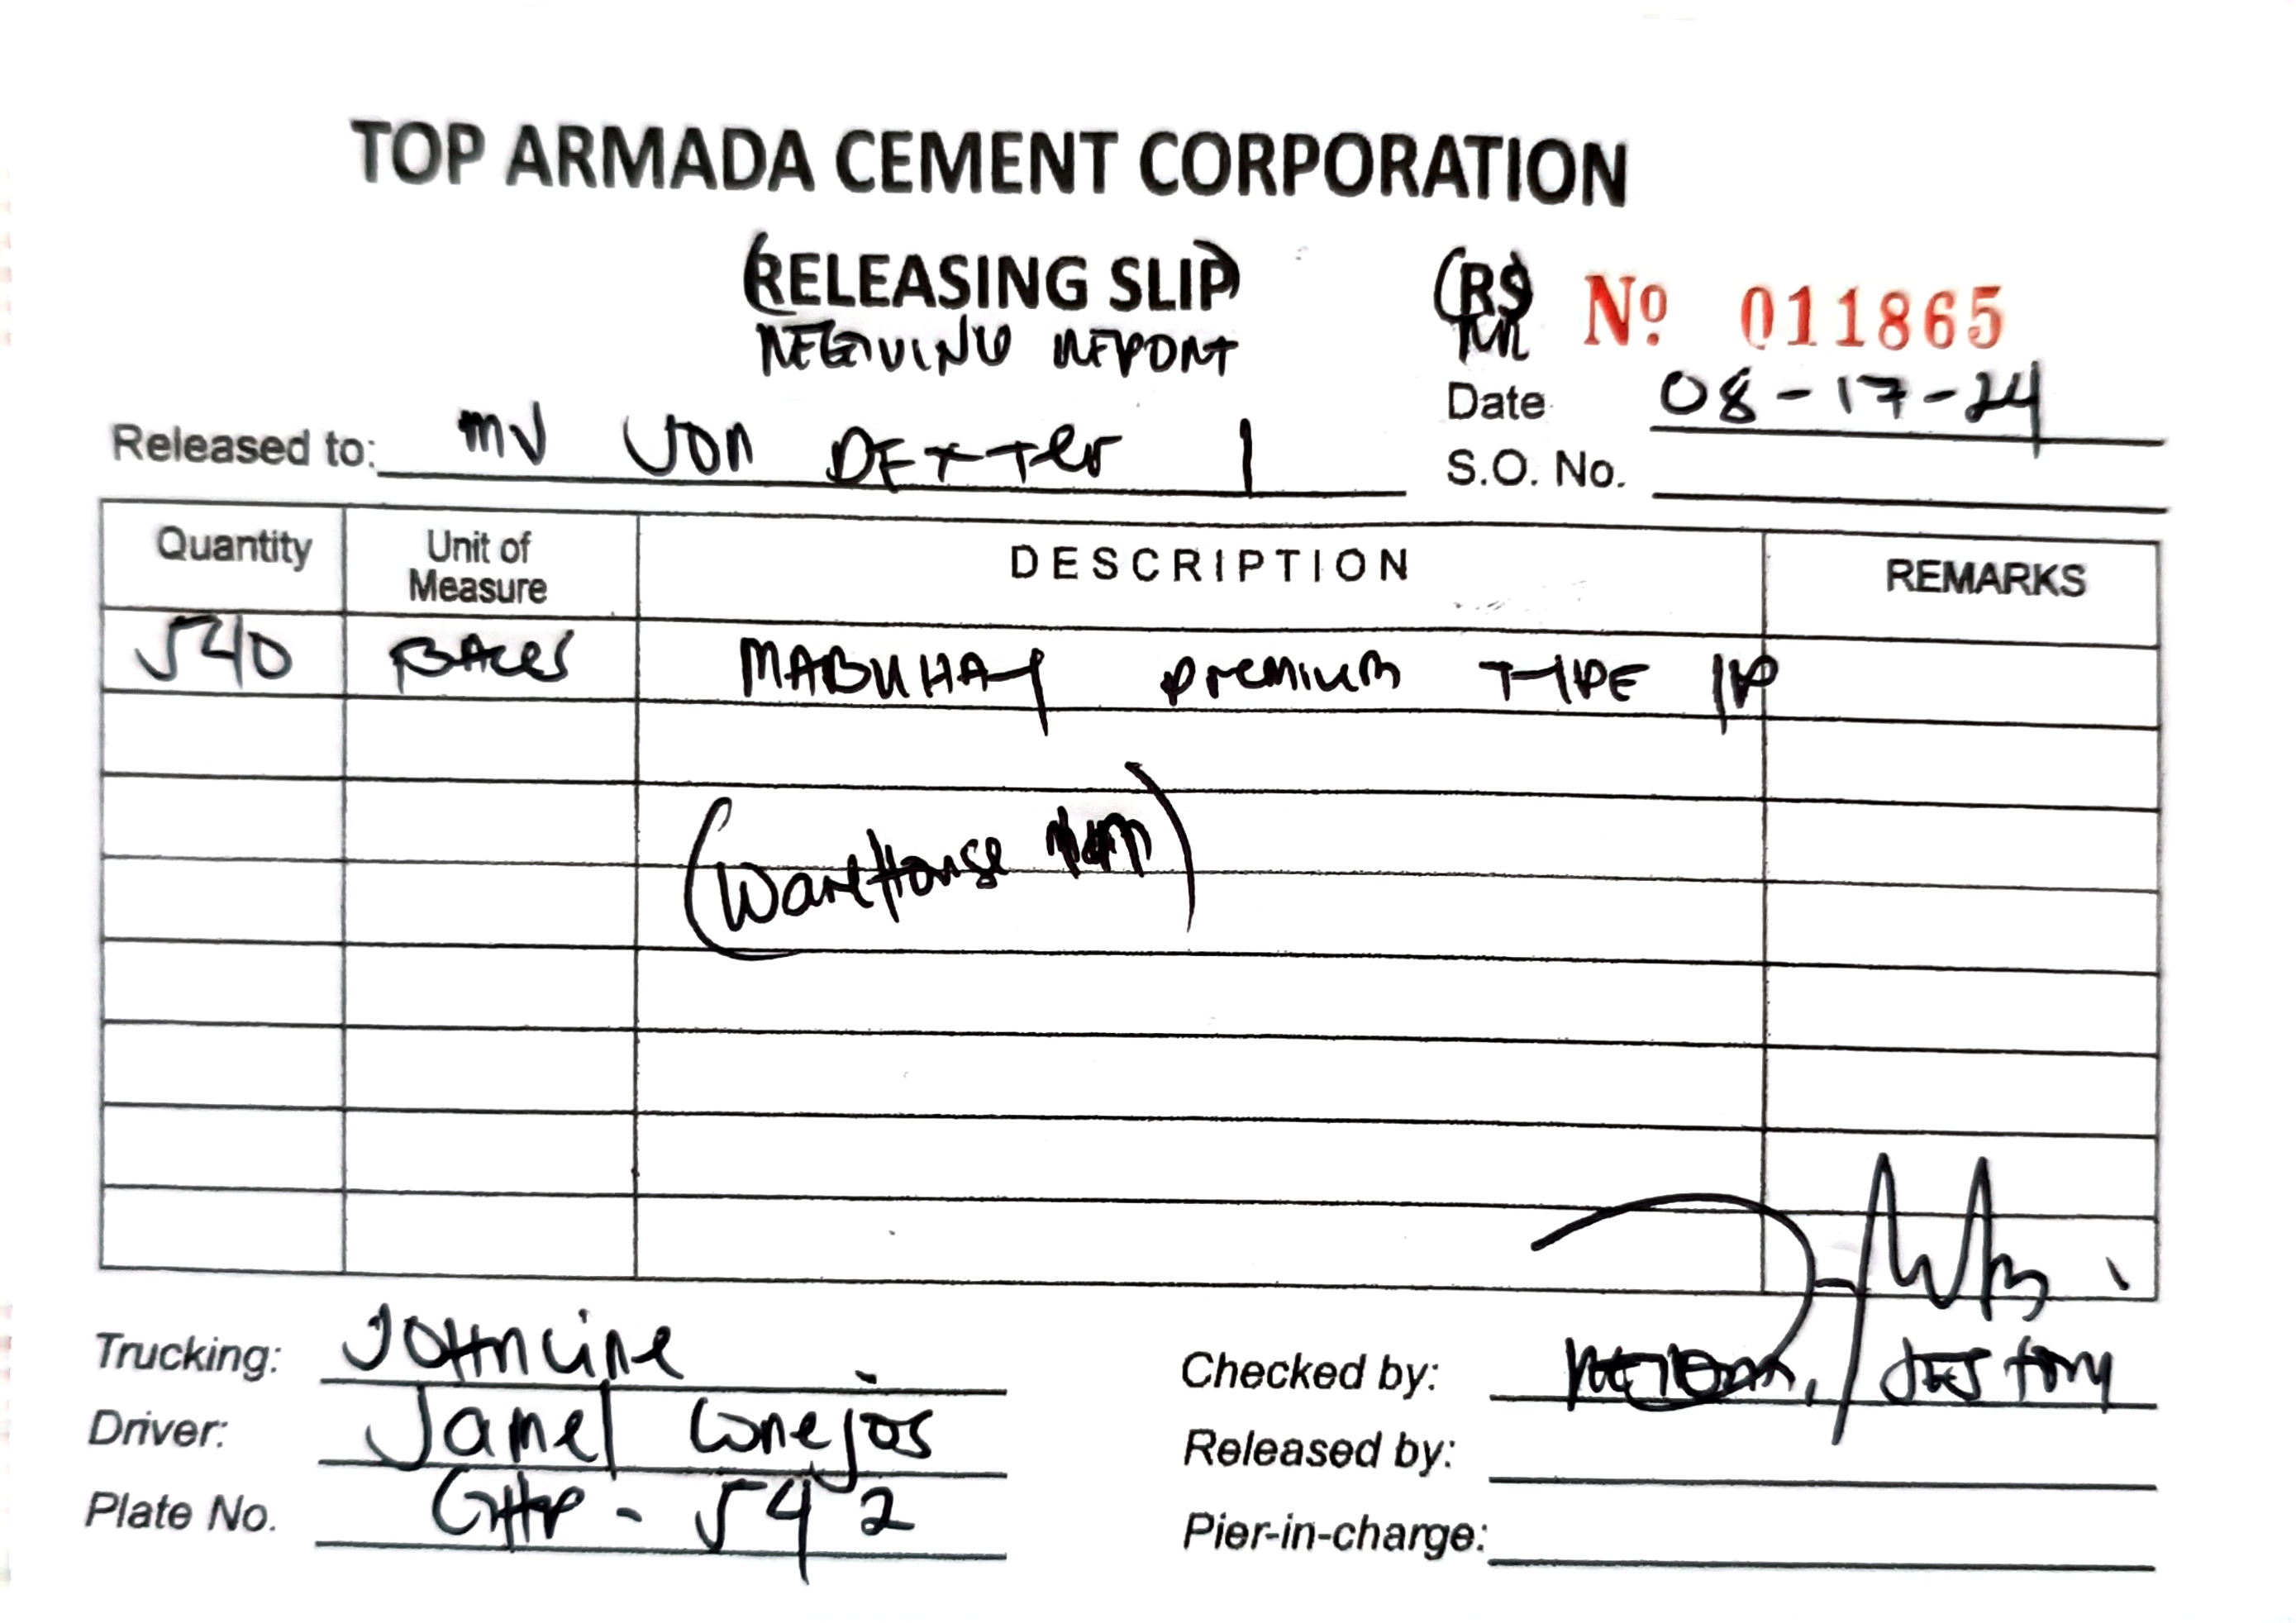 TOP ARMADA CEMENT CORPORATION
(RELEASING SLIP)
RECEIVING REPORT
(RS)
RR
Nº 011865
Date 08-17-24
Released to: MV JON DEXTER 1
S.O. No.
Quantity Unit of Measure DESCRIPTION REMARKS
540 BAGS MABUHAY Premium TYPE 1P
(WareHouse
Trucking: JOHNLINE
Driver: Jamel Conejos
Plate No. GHP-542
Checked by:
Released by:
Pier-in-charge: